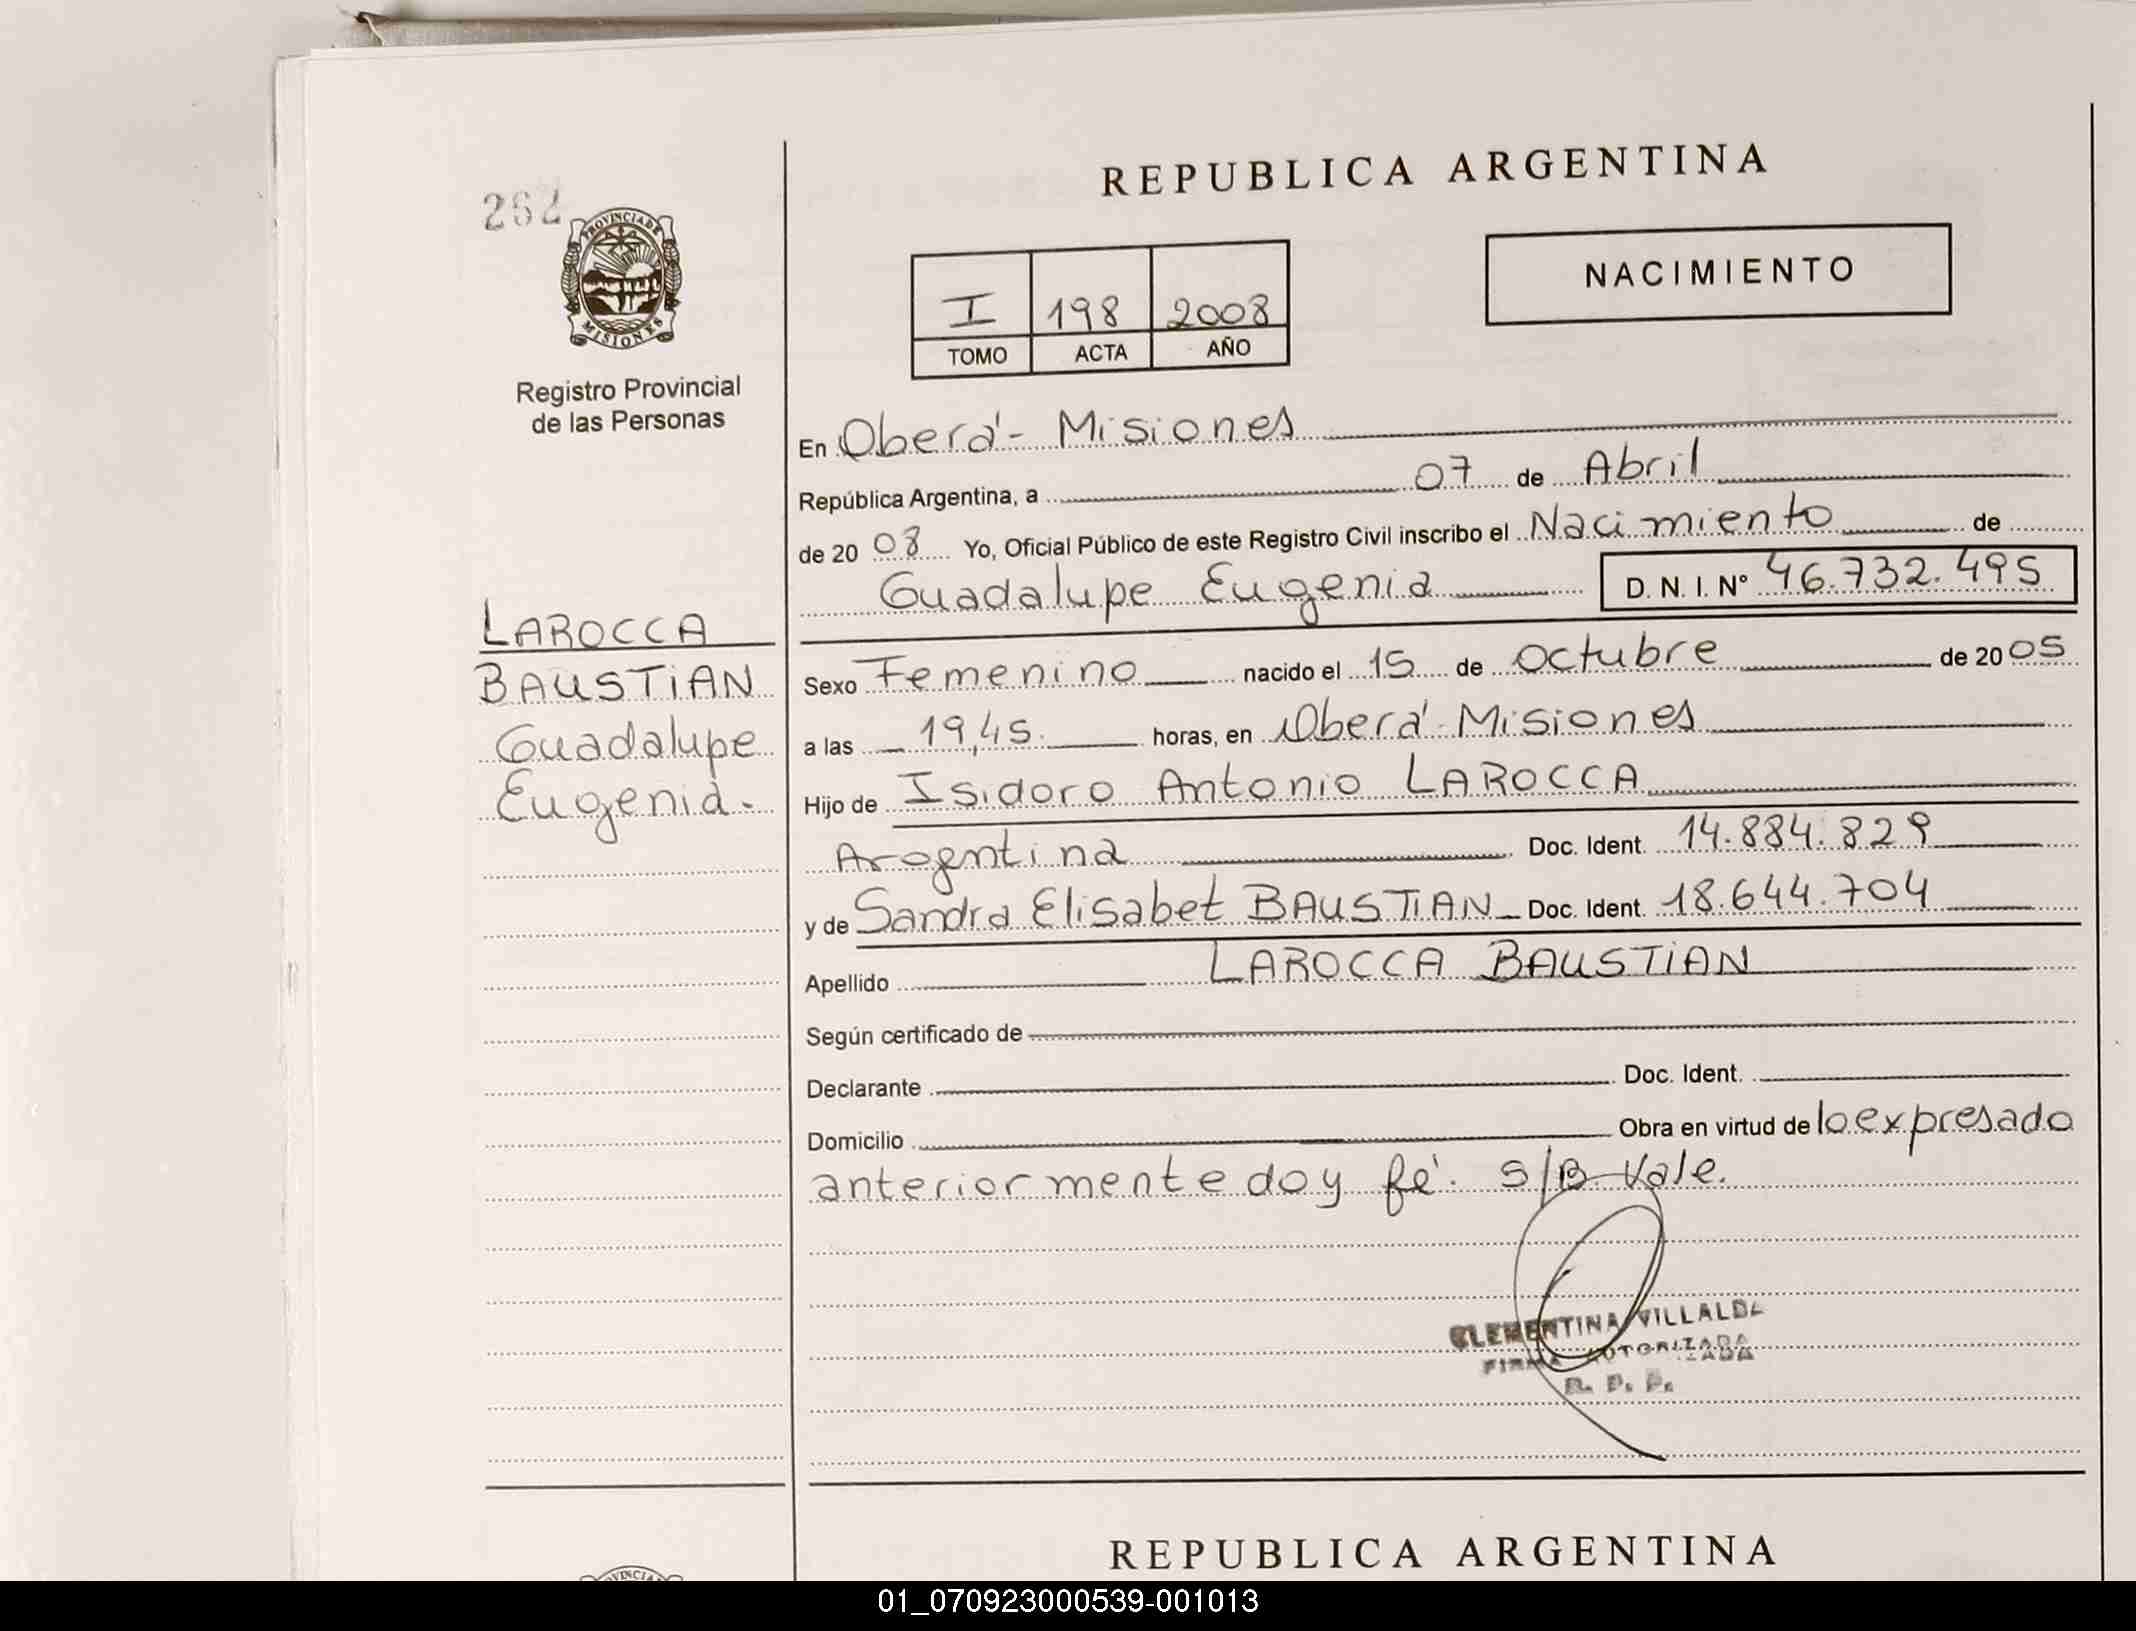 262
PROVINCIA DE
MISIONES
Registro Provincial
de las Personas
LAROCCA
BAUSTIAN
Guadalupe
Eugenia.
REPUBLICA ARGENTINA
NACIMIENTO
I 198 2008
TOMO ACTA AÑO
En Oberá - Misiones
República Argentina, a 07 de Abril
de 2008 Yo, Oficial Público de este Registro Civil inscribo el Nacimiento de
Guadalupe Eugenia D. N. I. Nº 46.732.495
Sexo Femenino nacido el 15 de Octubre de 2005
a las 19,45. horas, en Oberá - Misiones
Hijo de Isidoro Antonio LAROCCA
Argentina Doc. Ident. 14.884.829
y de Sandra Elisabet BAUSTIAN Doc. Ident. 18.644.704
Apellido LAROCCA BAUSTIAN
Según certificado de
Declarante Doc. Ident.
Domicilio Obra en virtud de lo expresado
anteriormente doy fé. S/B Vale.
CLEMENTINA VILLALBA
FIRMA AUTORIZADA
R. P. P.
REPUBLICA ARGENTINA
01_070923000539-001013